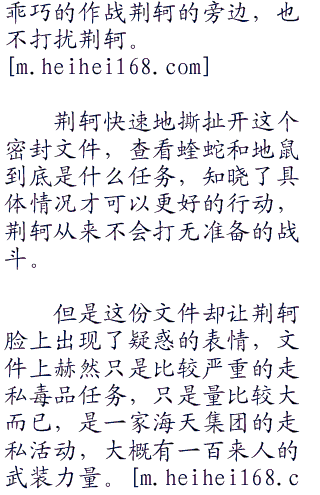 乖巧的作战荆轲的旁边，也
不打扰荆轲。
[m.heihei168.com]
荆轲快速地撕扯开这个
密封文件，查看蝰蛇和地鼠
到底是什么任务，知晓了具
体情况才可以更好的行动，
荆轲从来不会打无准备的战
斗。
但是这份文件却让荆轲
脸上出现了疑惑的表情，文
件上赫然只是比较严重的走
私毒品任务，只是量比较大
而已，是一家海天集团的走
私活动，大概有一百来人的
武装力量。[m.heihei168.c